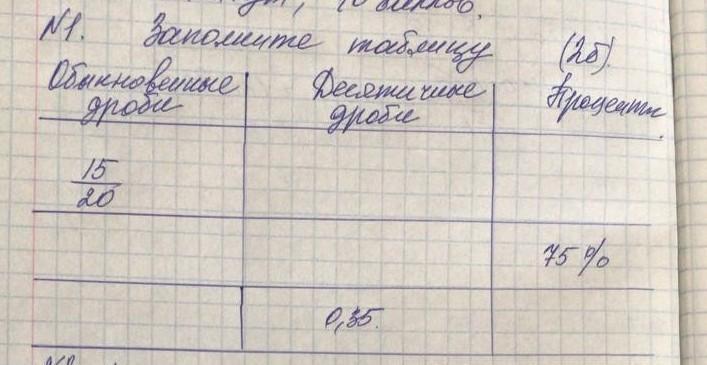 N1. Заполните таблицу (2б).
Обыкновенные дроби
Десятичные дроби
Проценты
15/20
75%
0,35.